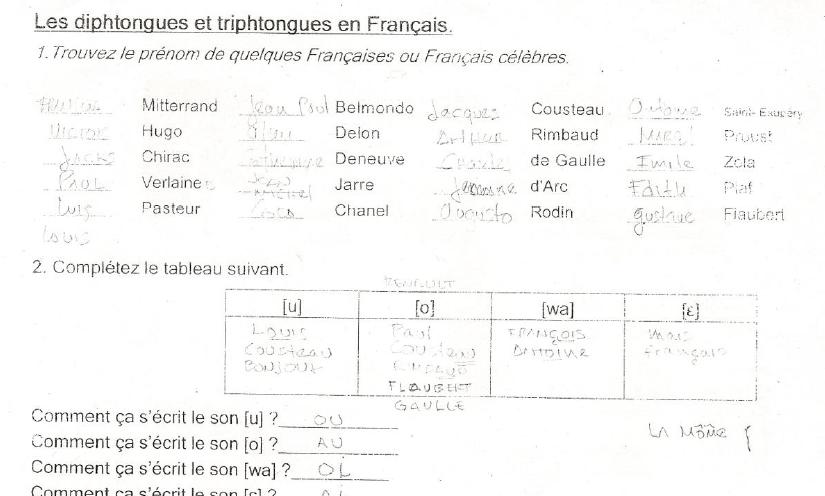 Les diphtongues et triphtongues en Français.
1. Trouvez le prénom de quelques Françaises ou Français célèbres.
Mitterrand Jean Paul Belmondo Jacques Cousteau Saint-Exupéry
Victor Hugo Alain Delon Arthur Rimbaud Proust
Chirac Catherine Deneuve de Gaulle Emile Zola
Paul Verlaine Jean Michel Jarre d'Arc Edith Piaf
Luis Pasteur Coco Chanel Augusto Rodin gustave Flaubert
Louis
2. Complétez le tableau suivant.
RENAULT
[u] [o] [wa] [ɛ]
Louis Paul FRANÇOIS mais
Cousteau Cousteau ANTOINE français
BONJOUR RIMBAUD
FLAUBERT
GAULLE
Comment ça s'écrit le son [u] ? OU
LA MÔME
Comment ça s'écrit le son [o] ? AU
Comment ça s'écrit le son [wa] ? OI
Comment ça s'écrit le son [ɛ] ? AI